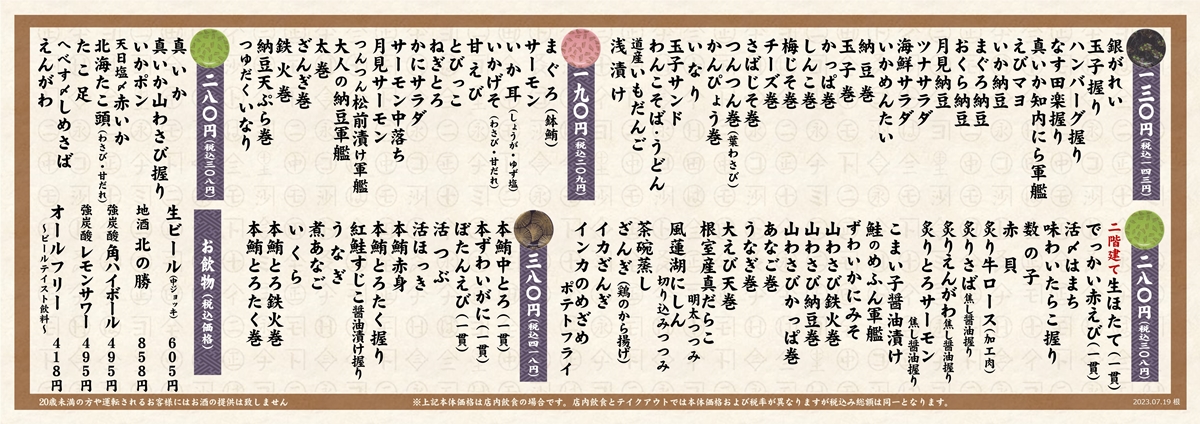 一三〇円(税込一四三円)
銀がれい
玉子握り
ハンバーグ握り
なす田楽握り
真いか知内にら軍艦
えびマヨ
いか納豆
まぐろ納豆
おくら納豆
月見納豆
ツナサラダ
海鮮サラダ
いかめんたい
納豆巻
玉子巻
かっぱ巻
しんこ巻
梅じそ巻
チーズ巻
さばじそ巻
つんつん巻(葉わさび)
かんぴょう巻
いなり
玉子サンド
わんこそば・うどん
道産いもだんご
浅漬け
一九〇円(税込二〇九円)
まぐろ(鉢鮪)
サーモン
いか耳(しょうが・ゆず塩)
いかげそ(わさび・甘だれ)
甘えび
とびっこ
ねぎとろ
かにサラダ
サーモン中落ち
月見サーモン
つんつん松前漬け軍艦
大人の納豆軍艦
太巻
ざんぎ巻
鉄火巻
納豆天ぷら巻
つゆだくいなり
二八〇円(税込三〇八円)
真いか
真いか山わさび握り
いかポン
天日塩〆赤いか
北海たこ頭(わさび・甘だれ)
たこ足
へべす〆しめさば
えんがわ
二八〇円(税込三〇八円)
二階建て生ほたて(一貫)
でっかい赤えび(一貫)
活〆はまち
味わいたらこ握り
数の子
赤貝
炙り牛ロース(加工肉)
炙りさば 焦し醤油握り
炙りえんがわ 焦し醤油握り
炙りとろサーモン 焦し醤油握り
こまい子醤油漬け
鮭のめふん軍艦
ずわいかにみそ
山わさび鉄火巻
山わさび納豆巻
山わさびかっぱ巻
あなご巻
うなぎ巻
大えび天巻
根室産真だらこ
風蓮湖にしん 明太つつみ
切り込みつつみ
茶碗蒸し
ざんぎ(鶏のから揚げ)
イカざんぎ
インカのめざめ ポテトフライ
三八〇円(税込四一八円)
本鮪中とろ(一貫)
本ずわいがに(一貫)
ぼたんえび(一貫)
活つぶ
活ほっき
本鮪赤身
本鮪とろたく握り
紅鮭すじこ醤油漬け握り
うなぎ
煮あなご
いくら
本鮪とろ鉄火巻
本鮪とろたく巻
お飲物(税込価格)
生ビール(中ジョッキ) 605円
地酒 北の勝 858円
強炭酸 角ハイボール 495円
強炭酸 レモンサワー 495円
オールフリー 418円
~ビールテイスト飲料~
20歳未満の方や運転されるお客様にはお酒の提供は致しません
※上記本体価格は店内飲食の場合です。店内飲食とテイクアウトでは本体価格および税率が異なりますが税込み総額は同一となります。
2023.07.19 根